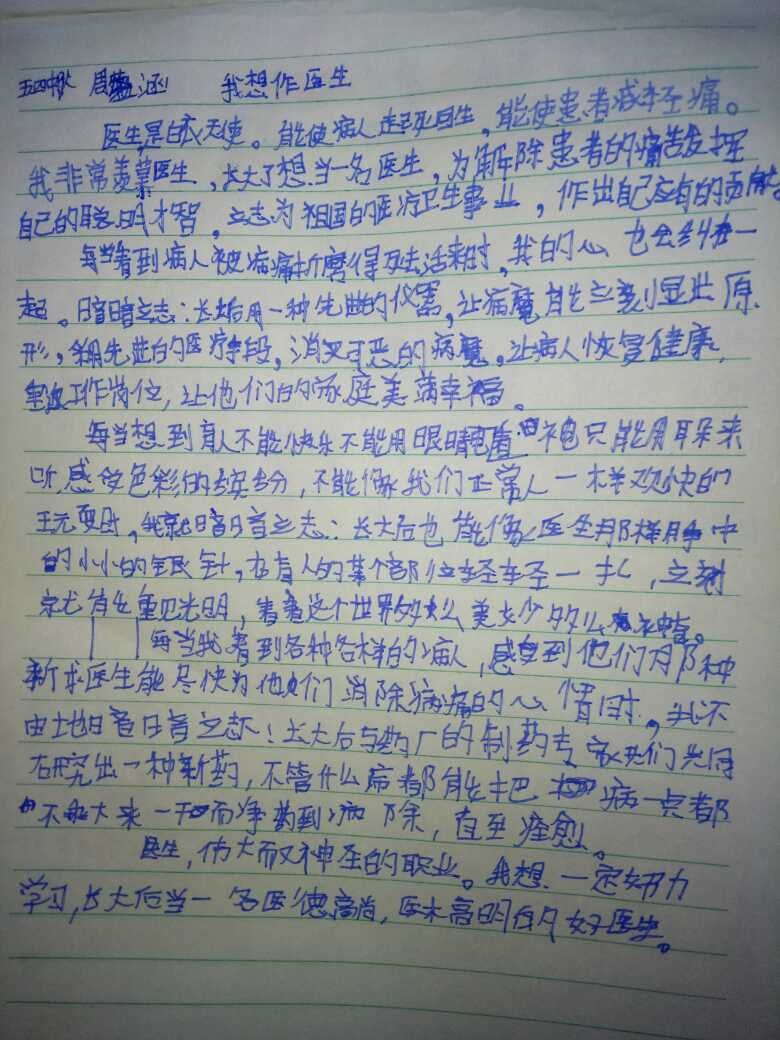 我想作医生
医生是白衣天使。能使病人起死回生，能使患者减轻痛。
我非常羡慕医生，长大了想当一名医生，为解除患者的痛苦发挥
自己的聪明才智，立志为祖国的医疗卫生事业，作出自己应有的贡献。
每当看到病人被病痛折磨得死去活来时，我的心也会纠在一
起。暗暗立志：长大后用一种先进的仪器，让病魔能立刻显出原
形，用先进的医疗手段，消灭可恶的病魔。让病人恢复健康，
工作岗位，让他们的家庭美满幸福。
每当想到盲人不能快乐不能用眼睛 只能用耳朵来
听，感受色彩的缤纷，不能像我们正常人一样欢快的
玩耍时，我就暗暗立志：长大后也能像医生那样用手中
的小小的银针，在盲人的某个部位轻轻一扎，立刻
就能重见光明，看看这个世界多么美 多么神奇。
每当我看到各种各样的病人，感受到他们那种
祈求医生能尽快为他们消除病痛的心情时，我不
由地暗暗立志！长大后与药厂的制药专家们共同
研究出一种新药，不管什么病都能把 病一点都
不 来 一干 而净药到病除，直至痊愈。
医生，伟大而又神圣的职业。我想一定努力
学习，长大后当一名医德高尚，医术高明的好医生。